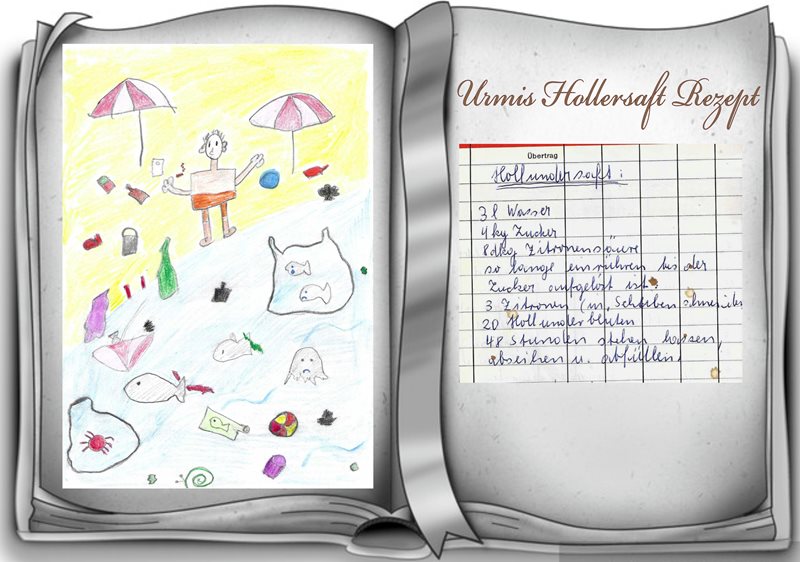 Urmis Hollersaft Rezept
Übertrag
Hollundersaft:
3 l Wasser
4 kg Zucker
8 dkg Zitronensäure
so lange einrühren bis der
Zucker aufgelöst ist.
3 Zitronen (in Scheiben schneiden
20 Hollunderblüten
48 Stunden stehen lassen,
abseihen u. abfüllen.